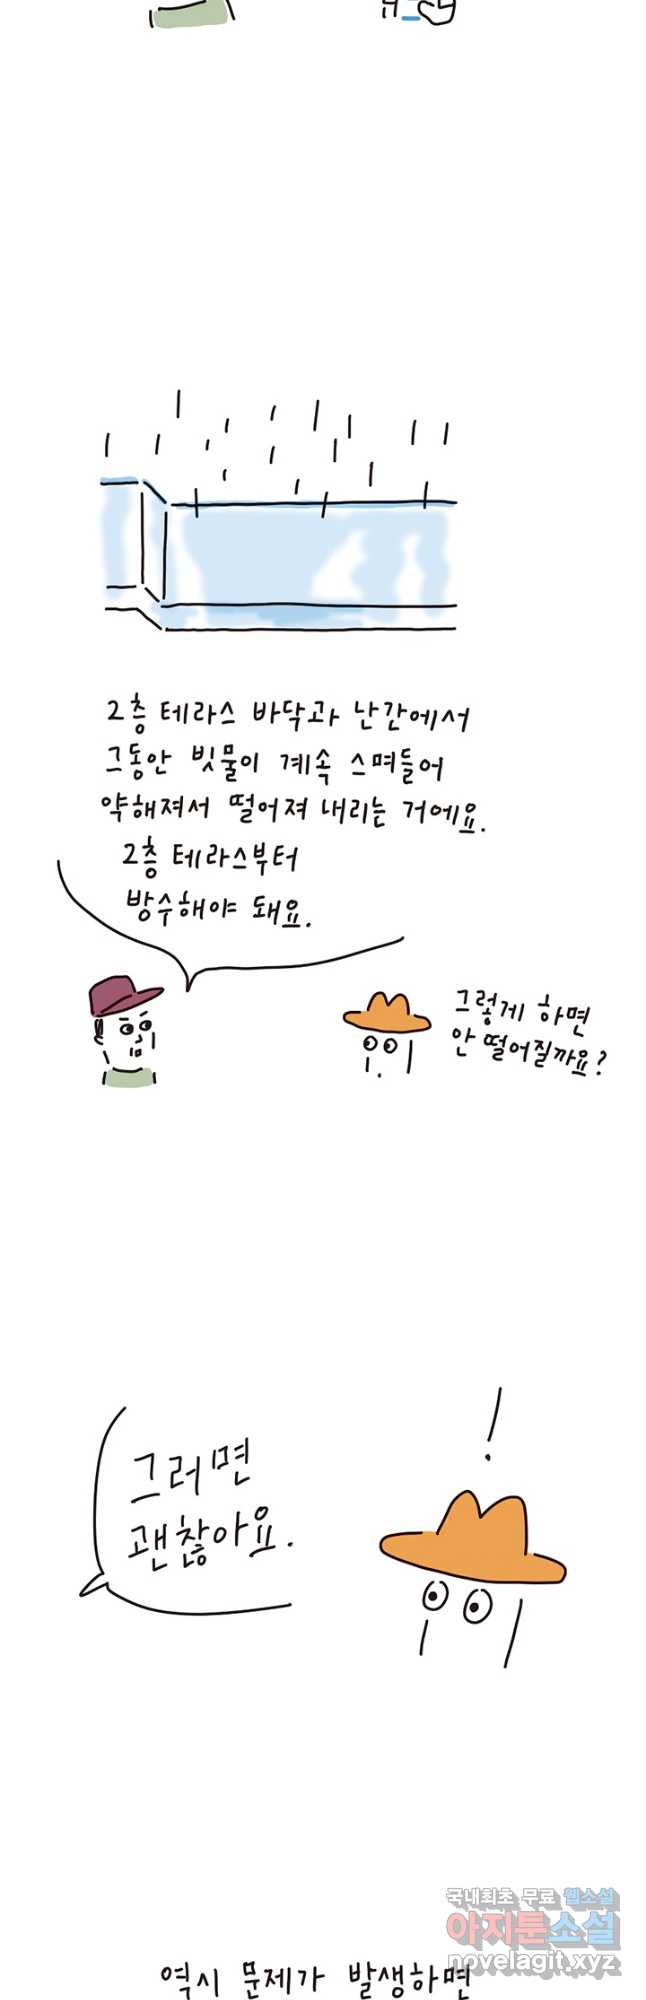 2층 테라스 바닥과 난간에서
그동안 빗물이 계속 스며들어
약해져서 떨어져 내리는 거에요.
2층 테라스부터
방수해야 돼요.
그렇게 하면
안 떨어질까요?
!
그러면
괜찮아요.
국내최초 무료 웹소설
아지툰소설
novelagit.xyz
역시 문제가 발생하면